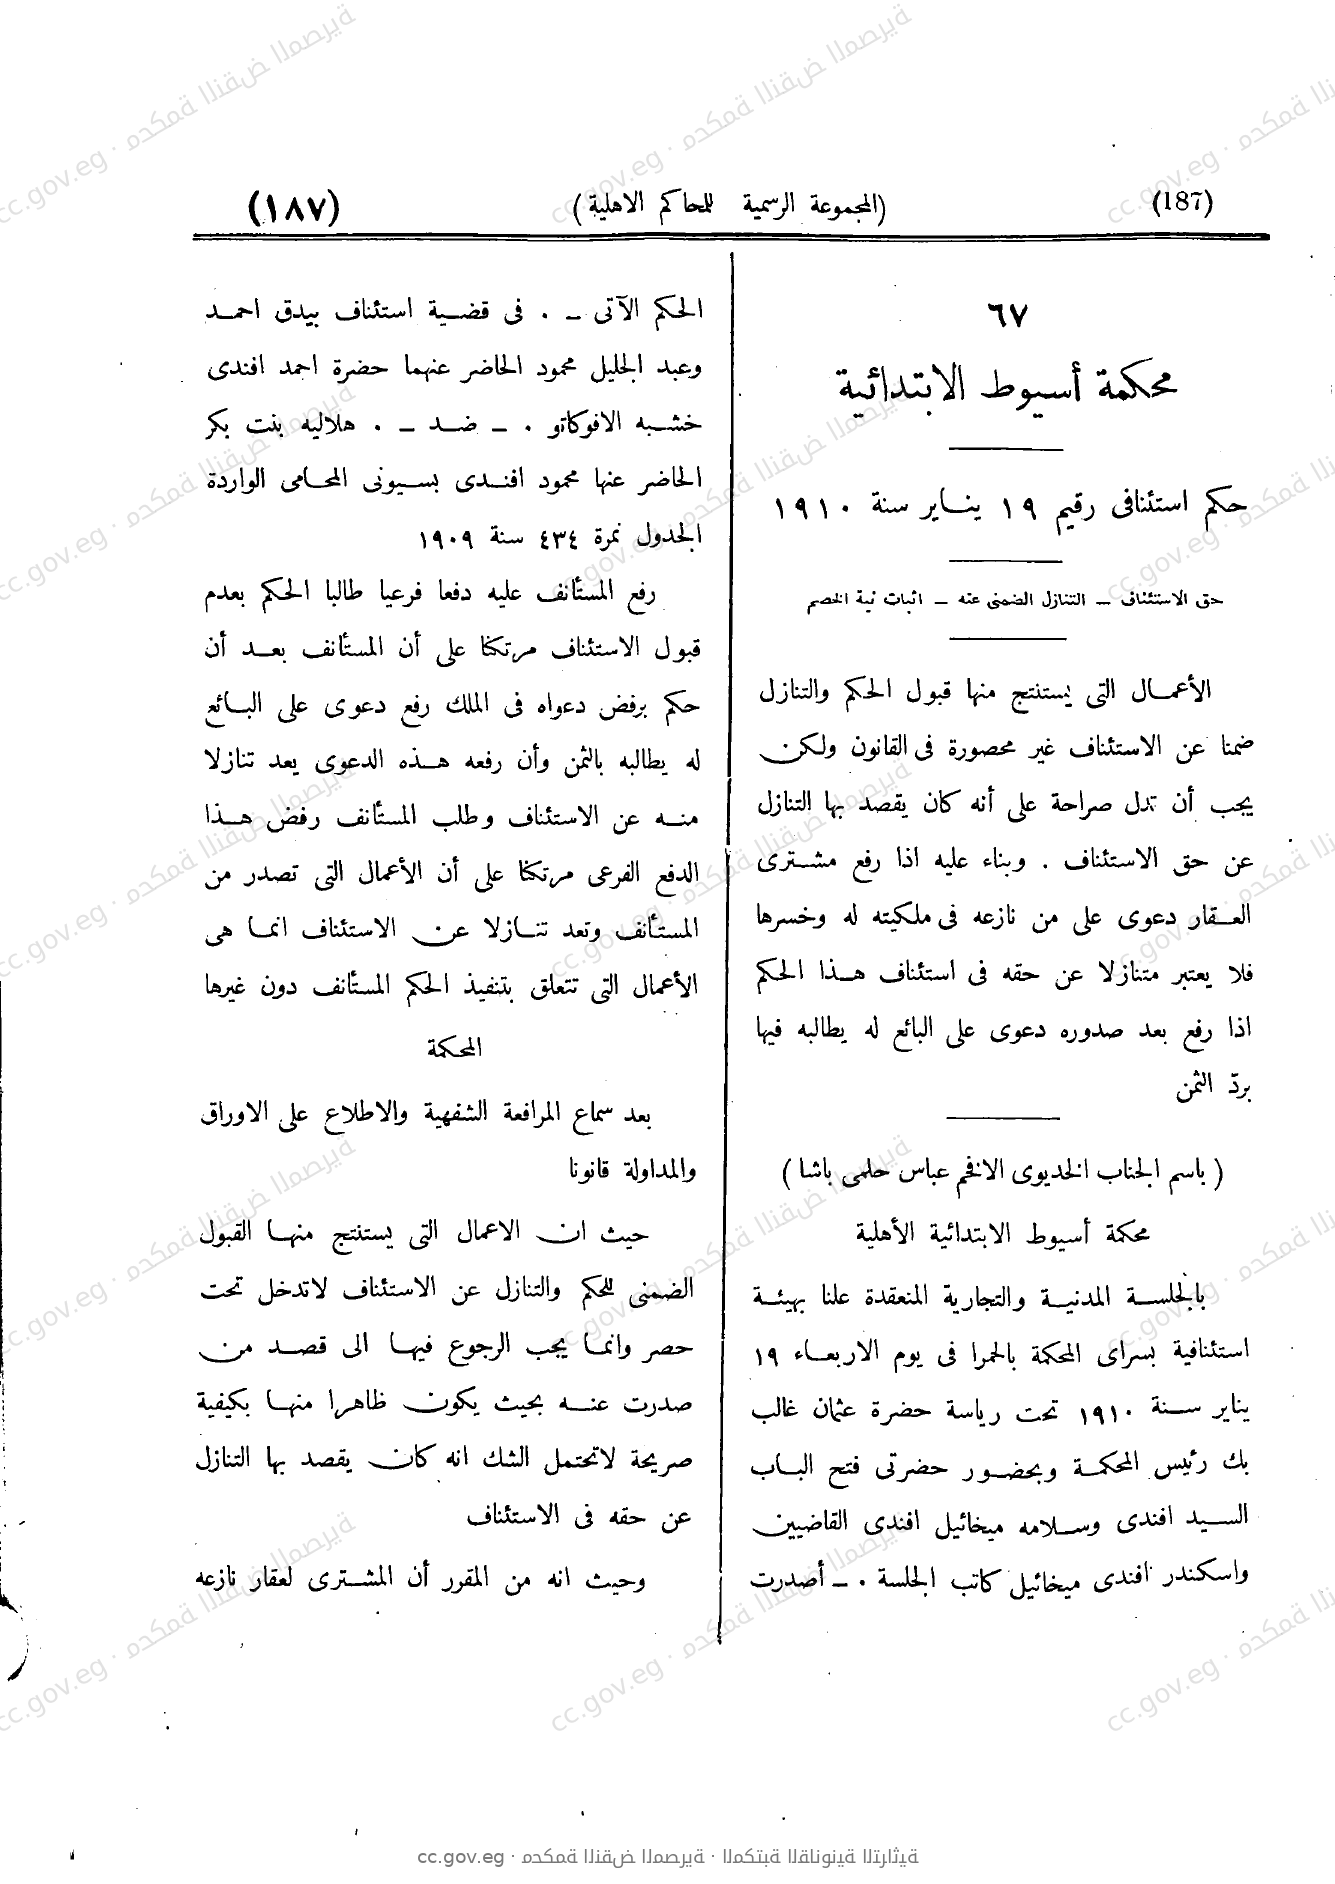 (187)
(المجموعة الرسمية للمحاكم الاهلية)
(١٨٧)
٦٧
محكمة أسيوط الابتدائية
حكم استئنافى رقيم ١٩ ينـاير سنة ١٩١٠
حق الاستئناف – التنازل الضمنى عنه – اثبات نية الخصم
الأعمـال التى يستنتج منها قبول الحكم والتنازل
ضمنا عن الاستئناف غير محصورة فى القانون ولكن
يجب أن تدل صراحة على أنه كان يقصد بها التنازل
عن حق الاستئناف . وبناء عليه اذا رفع مشـترى
العـقار دعوى على من نازعه فى ملكيته له وخسرها
فلا يعتبر متنازلا عن حقه فى استئناف هـذا الحكم
اذا رفع بعد صدوره دعوى على البائع له يطالبه فيها
بردّ الثمن
( باسم الجناب الخديوى الافخم عباس حلمى باشا )
محكمة أسيوط الابتدائية الأهلية
بالجلسـة المدنيـة والتجارية المنعقدة علنا بهيئـة
استئنافية بسراى المحكمة بالحمرا فى يوم الاربعـاء ١٩
يناير سـنة ١٩١٠ تحت رياسة حضرة عثمان غالب
بك رئيس المحكمـة وبحضـور حضرتى فتح البـاب
السـيد افندى وسـلامه ميخائيل افندى القاضيين
واسكندر افندى ميخائيل كاتب الجلسة . – أصدرت
الحكم الآتى – . فى قضـية استئناف بيدق احمـد
وعبد الجليل محمود الحاضر عنهما حضرة احمد افندى
خشـبه الافوكاتو . – ضـد – . هلاليه بنت بكر
الحاضر عنها محمود افنـدى بسـيونى المحـامى الواردة
الجدول نمرة ٤٣٤ سنة ١٩٠٩
رفع المستأنف عليه دفعا فرعيا طالبا الحكم بعدم
قبول الاستئناف مرتكنا على أن المستأنف بعـد أن
حكم برفض دعواه فى الملك رفع دعوى على البـائع
له يطالبه بالثمن وأن رفعه هـذه الدعوى يعد تنازلا
منـه عن الاستئناف وطلب المستأنف رفض هـذا
الدفع الفرعى مرتكنا على أن الأعمال التى تصدر من
المستأنف وتعد تنـازلا عن الاستئناف انمـا هى
الأعمال التى تتعلق بتنفيذ الحكم المستأنف دون غيرها
المحكمة
بعد سماع المرافعة الشفهية والاطلاع على الاوراق
والمداولة قانونا
حيث ان الاعمال التى يستنتج منهـا القبول
الضمنى للحكم والتنازل عن الاستئناف لاتدخل تحت
حصر وانمـا يجب الرجوع فيهـا الى قصـد من
صدرت عنـه بحيث يكون ظاهرا منهـا بكيفية
صريحة لاتحتمل الشك انه كان يقصد بها التنازل
عن حقه فى الاستئناف
وحيث انه من المقرر أن المشـترى لعقار نازعه
cc.gov.eg · محكمة النقض المصرية · المكتبة القانونية التراثية